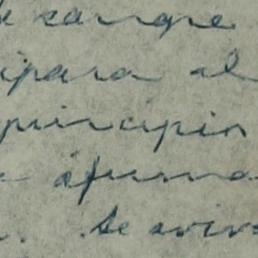 de sangre
ipara al
principio
espuma
. Se aviv